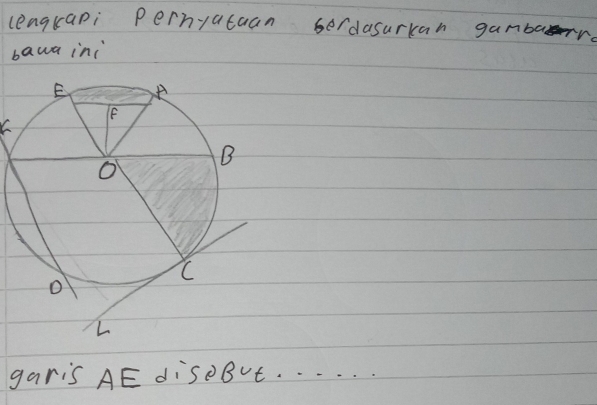 lengkapi Pernyataan berdasarkan
bawa ini
E A
F
K
O B
C
D
L
garis AE diseBut.......